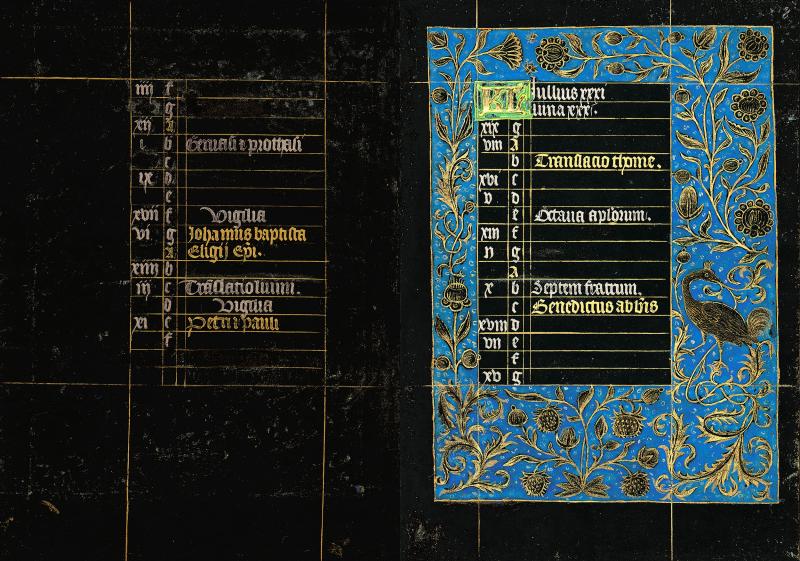 iiii f
g
xii A
i b Geruasii ⁊ prothasi
c
ix d
e
xvii f Vigilia
vi g Johannis baptista
A Eligij epi.
xiiii b
iii c Translatio
d Vigilia
xi e Petri ⁊ pauli
f
KL Iullius xxxi
luna xxx.
xix g
viii A
b Translacio thome.
xvi c
v d
e Octaua aplorum.
xiii f
ii g
A
x b Septem fratrum.
c Benedictus abbis
xviii d
vii e
f
xv g